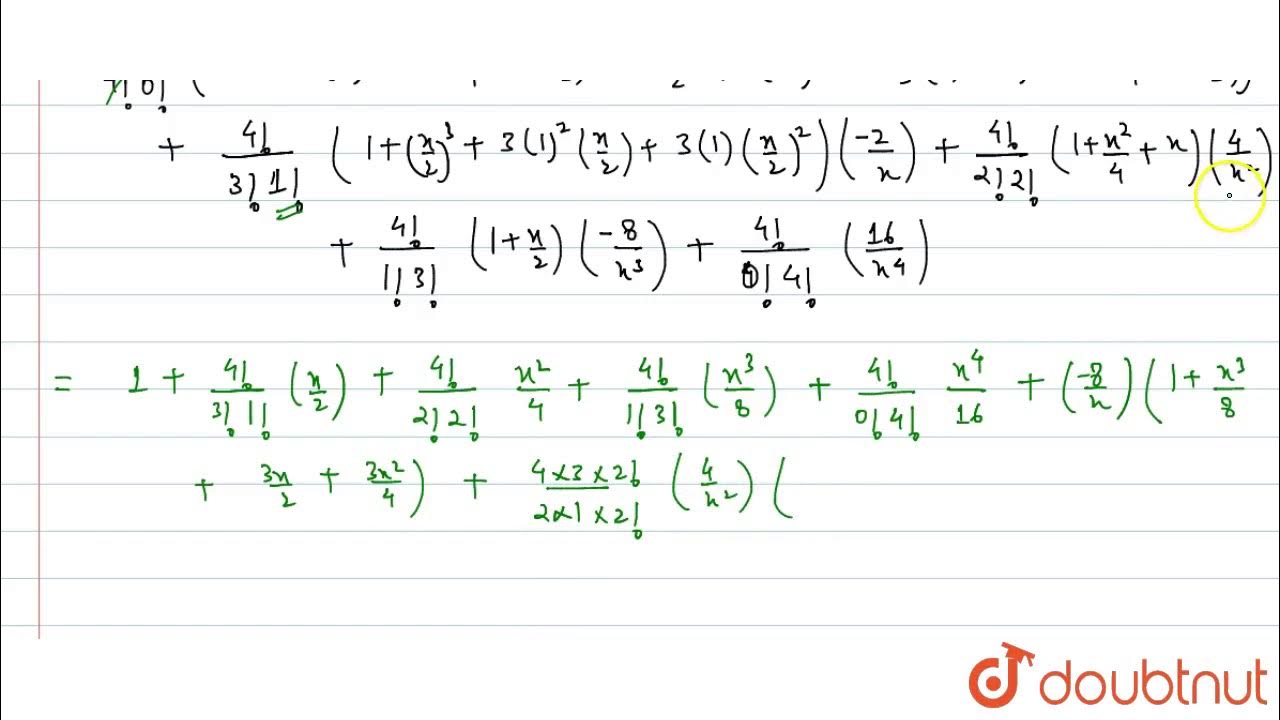 4! 0! (
+ 4!/(3! 1!) (1+(x/2)^3 + 3(1)^2 (x/2) + 3(1) (x/2)^2) (-2/x) + 4!/(2! 2!) (1+x^2/4 + x) (4/x^2)
+ 4!/(1! 3!) (1+x/2) (-8/x^3) + 4!/(0! 4!) (16/x^4)
= 1 + 4!/(3! 1!) (x/2) + 4!/(2! 2!) x^2/4 + 4!/(1! 3!) (x^3/8) + 4!/(0! 4!) x^4/16 + (-8/x) (1 + x^3/8
+ 3x/2 + 3x^2/4) + (4×3×2!)/(2×1×2!) (4/x^2) (
doubtnut